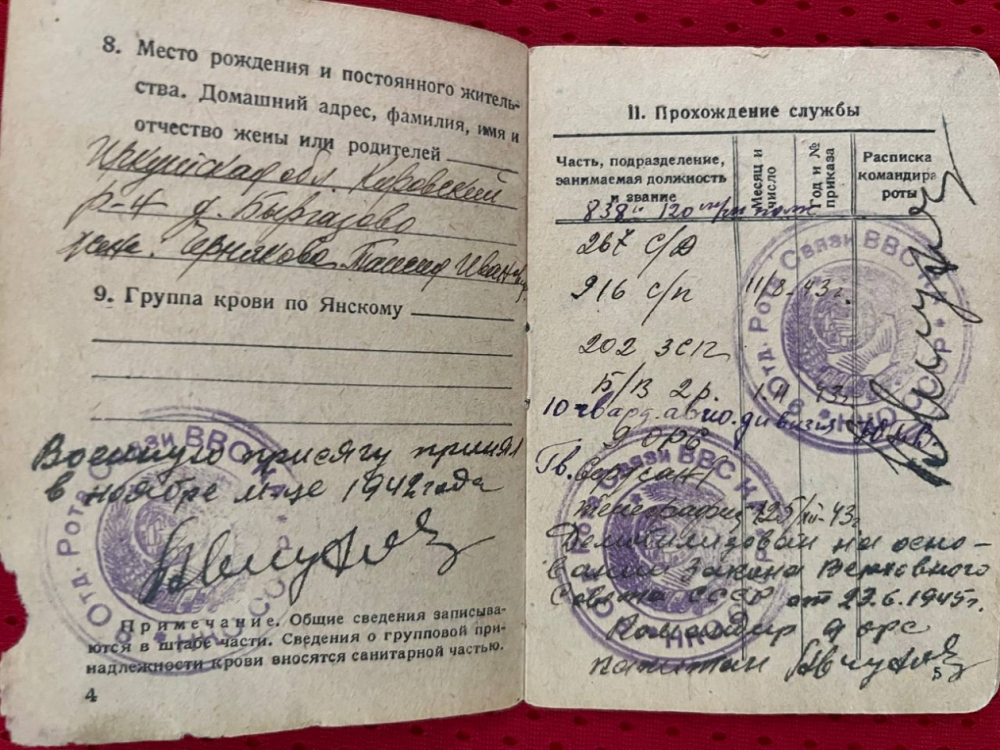 8. Место рождения и постоянного житель-
ства. Домашний адрес, фамилия, имя и
отчество жены или родителей
Иркутская обл. Куровский
р-н д. Быргазово
жена. Чернякова Таисия Иван
9. Группа крови по Янскому
Военную присягу принял
в ноябре м-це 1942 года
Примечание. Общие сведения записыва-
ются в штабе части. Сведения о групповой при-
надлежности крови вносятся санитарной частью.
4
11. Прохождение службы
Часть, подразделение, занимаемая должность и звание
Месяц и число
Год и № приказа
Расписка командира роты
838й 120
267 с/д
916 с/п 43г.
202 зсп
Б/В 2р. 43г.
10 гвард. авио. дивизия
9 орс
Гв. сержант
телеграфист 25/XII-43г
Демобилизован на осно-
вании Закона Верховного
Совета СССР от 23.6.1945г.
Командир 9 орс
капитан
5
Отд. Рота Связи ВВС
Отд. Рота Связи ВВС
Связи ВВС